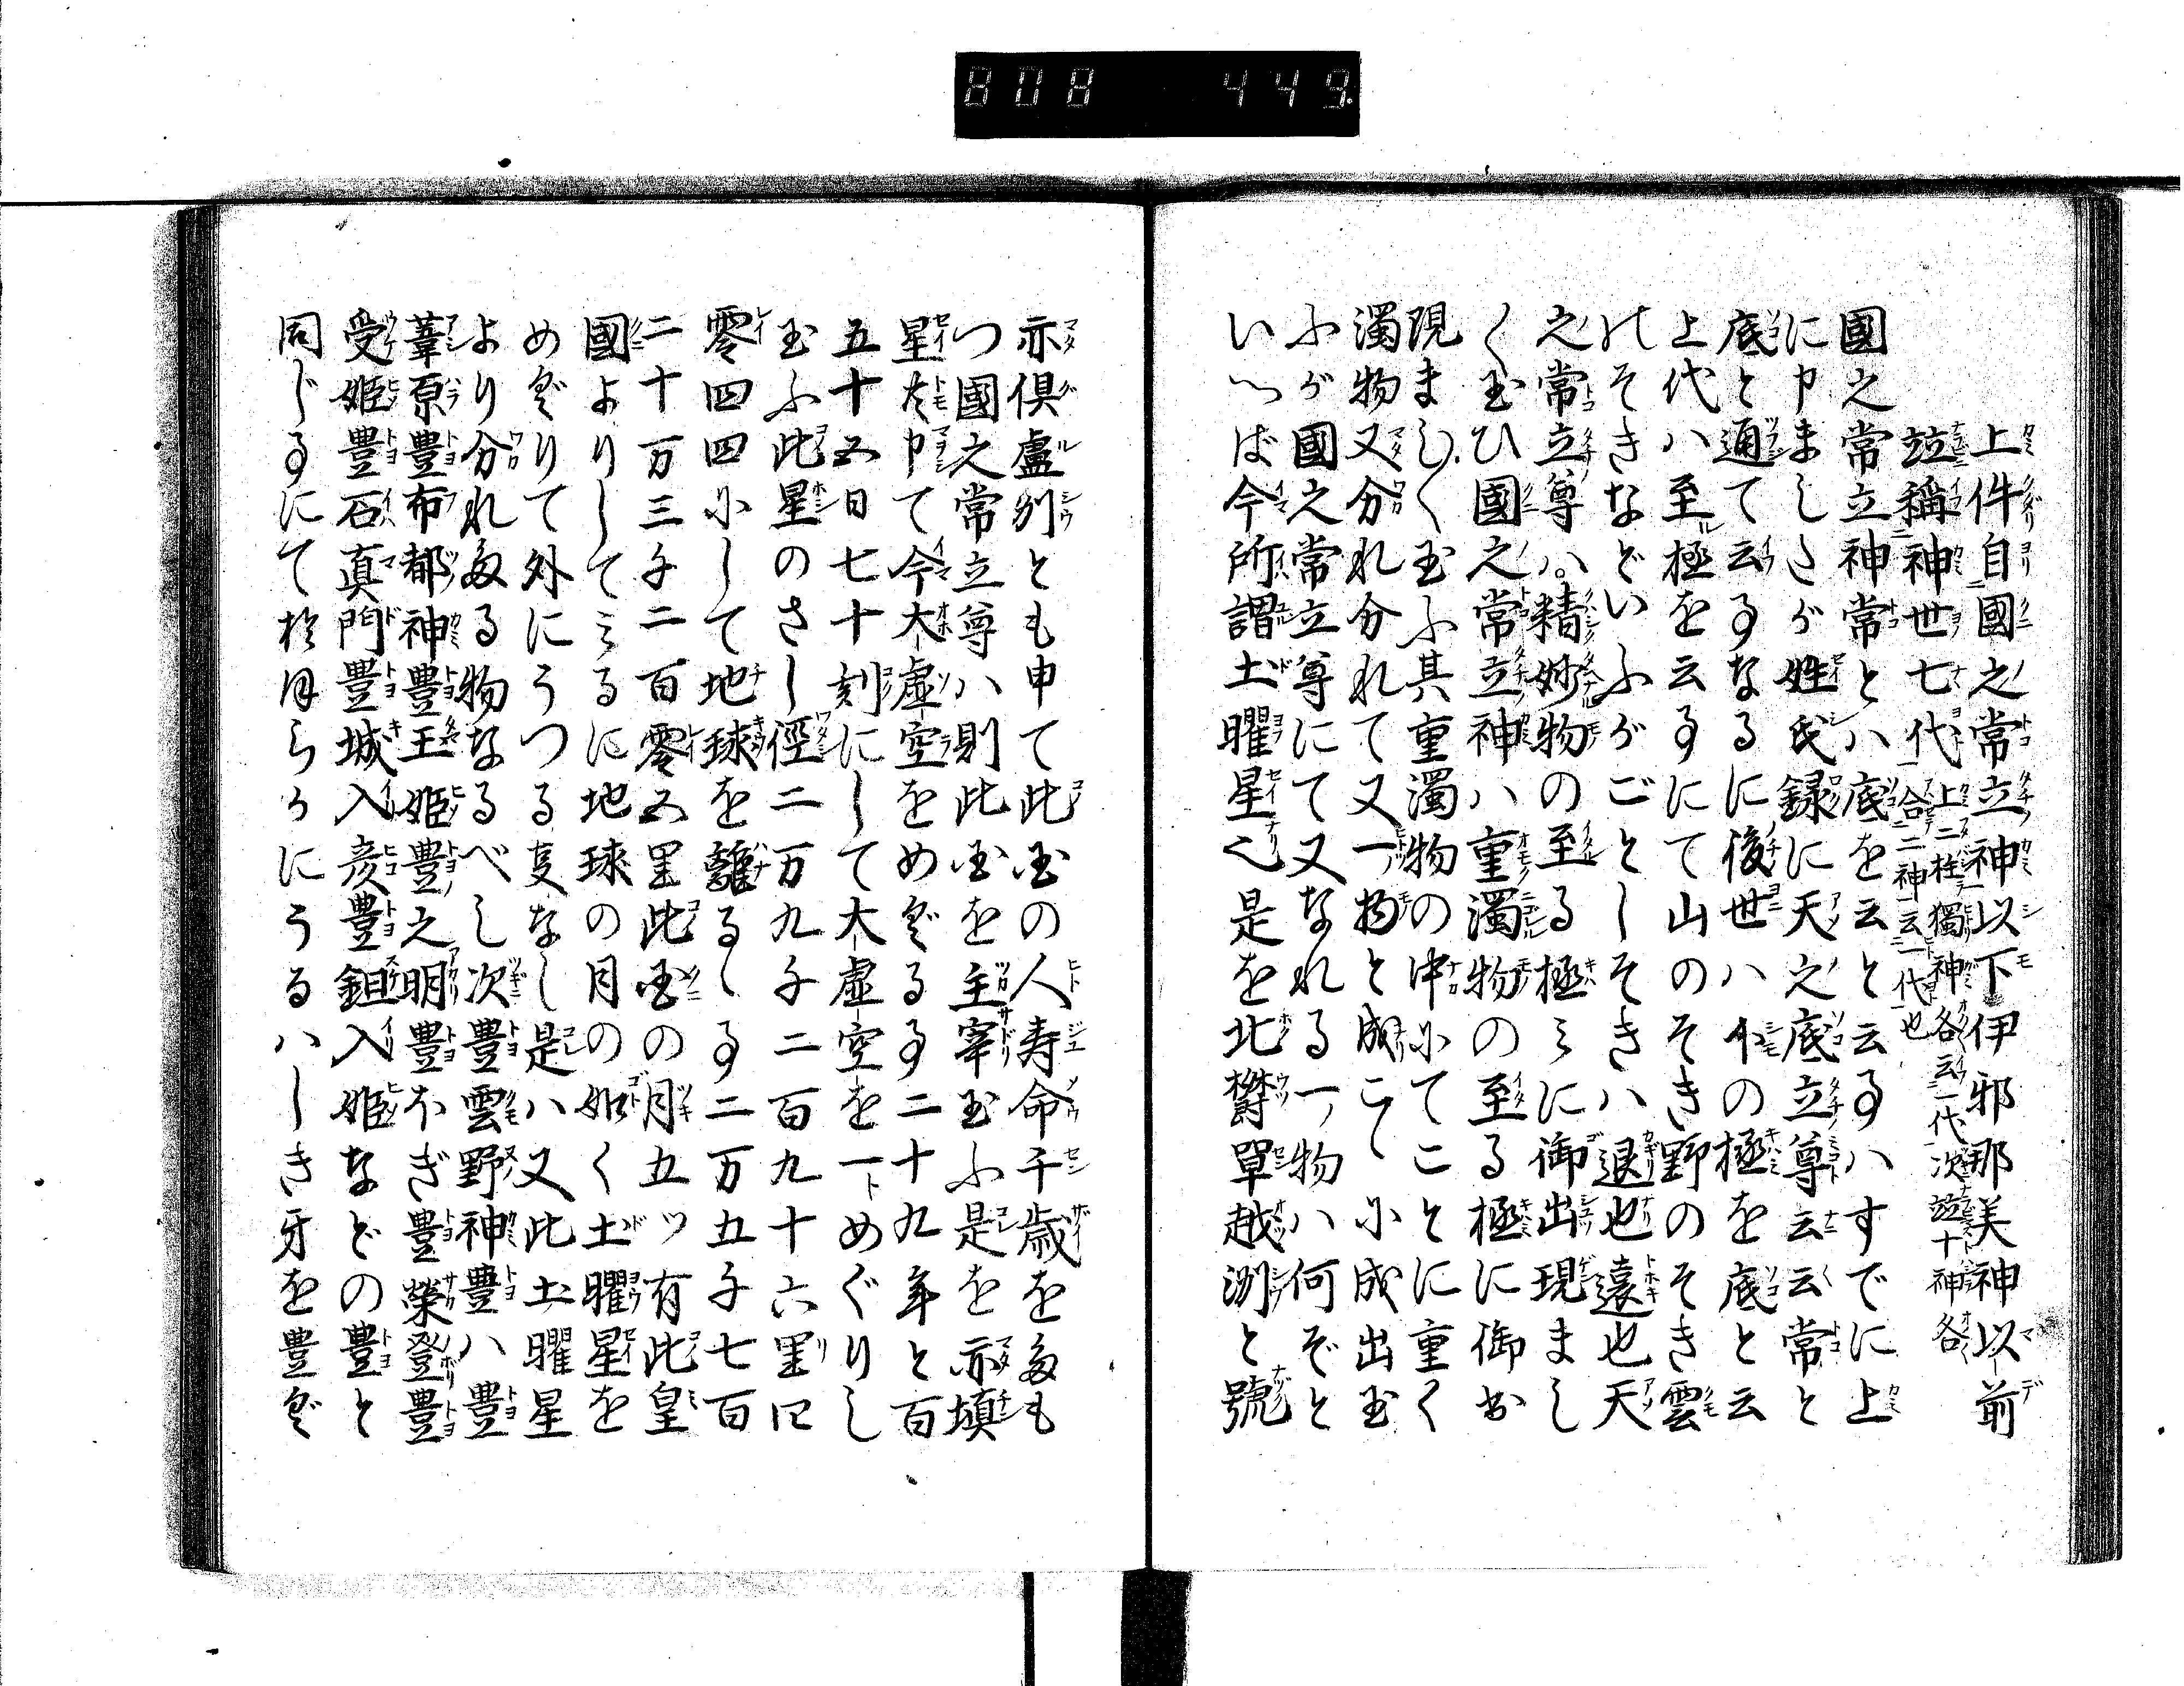 808 449.
上件自國之常立神以下伊邪那美神以前
竝稱神世七代上二柱獨神各云一代次竝十神各
合二神云一代也
國之常立神常とハ底を云と云るハすでに上
に申ましきが姓氏録に天之底立尊云云常と
底と通て云るなるに後世ハ下の極を底と云
上代ハ至極を云るにて山のそき野のそき雲
のそきなどいふがごとしそきハ退也遠也天
之常立尊ハ精妙物の至る極ミに御出現まし
く玉ひ國之常立神ハ重濁物の至る極に御出
現ましく玉ふ其重濁物の中にてことに重く
濁物又分れ分れて又一物と成こゝに成出玉
ふが國之常立尊にて又なれる一物ハ何ぞと
いへば今所謂土曜星也是を北欝單越洲と號
亦倶盧洲とも申て此国の人寿命千歳をたも
つ國之常立尊ハ則此国を主宰玉ふ是を亦填
星共申て今大虚空をめぐる事二十九年と百
五十五日七十刻にして大虚空を一トめぐりし
玉ふ此星のさし徑二万九千二百九十六里四
零四四にして地球を離るゝ事二万五千七百
二十万三千二百零五里此国の月五ツ有此皇
國よりしてミるに地球の月の如く土曜星を
めぐりて外にうつる事なし是ハ又此土曜星
より分れたる物なるべし次豊雲野神豊ハ豊
葦原豊布都神豊玉姫豊之明豊ほぎ豊榮登豊
受姫豊石真門豊城入彦豊鉏入姫などの豊と
同じ事にて於ほらかにうるハしき牙を豊ぐ